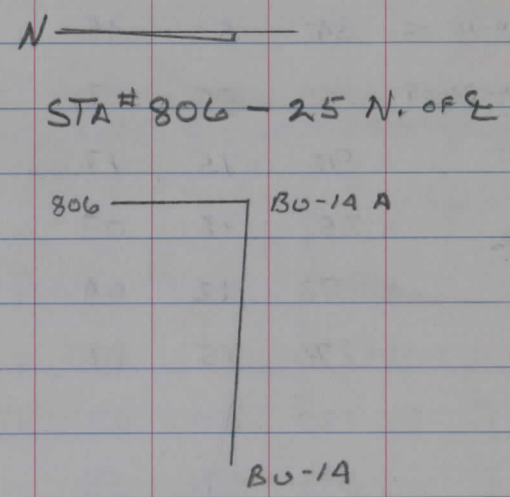 N
STA # 806 - 25 N. OF ℄
806 BU-14 A
BU-14